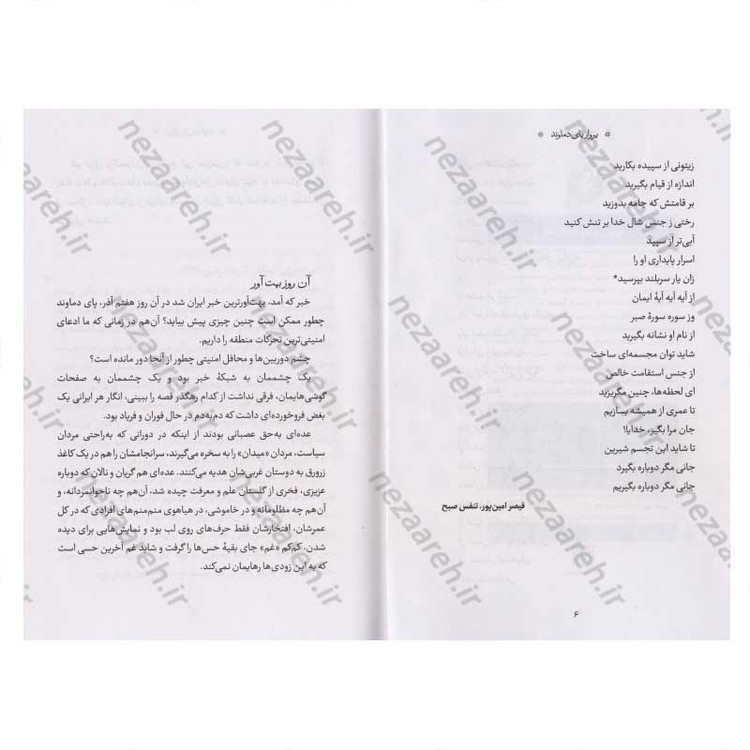 پرواز پای دماوند
زیتونی از سپیده بکارید
اندازه از قیام بگیرید
بر قامتش که جامه بدوزید
رختی ز جنس شال خدا بر تنش کنید
آبی‌تر از سپید
اسرار پایداری او را
زان یار سربلند بپرسید*
از آیه آیه آیهٔ ایمان
وز سوره سورهٔ صبر
از نام او نشانه بگیرید
شاید توان مجسمه‌ای ساخت
از جنس استقامت خالص
ای لحظه‌ها، چنین مگریزید
تا عمری از همیشه بسازیم
جان مرا بگیر، خدایا!
تا شاید این تجسم شیرین
جانی مگر دوباره بگیرد
جانی مگر دوباره بگیریم
قیصر امین‌پور، تنفس صبح
۶
آن روز بهت آور
خبر که آمد، بهت‌آورترین خبر ایران شد در آن روز هفتم آذر، پای دماوند
چطور ممکن است چنین چیزی پیش بیاید؟ آن‌هم در زمانی که ما ادعای
امنیتی‌ترین تحرکات منطقه را داریم.
چشم دوربین‌ها و محافل امنیتی چطور از آنجا دور مانده است؟
یک چشممان به شبکهٔ خبر بود و یک چشممان به صفحات
گوشی‌هایمان، فرقی نداشت از کدام رهگذر قصه را ببینی، انگار هر ایرانی یک
بغض فروخورده‌ای داشت که دم‌به‌دم در حال فوران و فریاد بود.
عده‌ای به‌حق عصبانی بودند از اینکه در دورانی که به‌راحتی مردان
سیاست، مردان «میدان» را به سخره می‌گیرند، سرانجامشان را هم در یک کاغذ
زرورق به دوستان غربی‌شان هدیه می‌کنند. عده‌ای هم گریان و نالان که دوباره
عزیزی، فخری از گلستان علم و معرفت چیده شد، آن‌هم چه ناجوانمردانه، و
آن‌هم چه مظلومانه و در خاموشی، در هیاهوی منم‌منم‌های افرادی که در کل
عمرشان، افتخارشان فقط حرف‌های روی لب بود و نمایش‌هایی برای دیده
شدن، کم‌کم «غم» جای بقیهٔ حس‌ها را گرفت و شاید غم آخرین حسی است
که به این زودی‌ها رهایمان نمی‌کند.
nezaareh.ir
nezaareh.ir
nezaareh.ir
nezaareh.ir
nezaareh.ir
nezaareh.ir
nezaareh.ir
nezaareh.ir
nezaareh.ir
nezaareh.ir
nezaareh.ir
nezaareh.ir